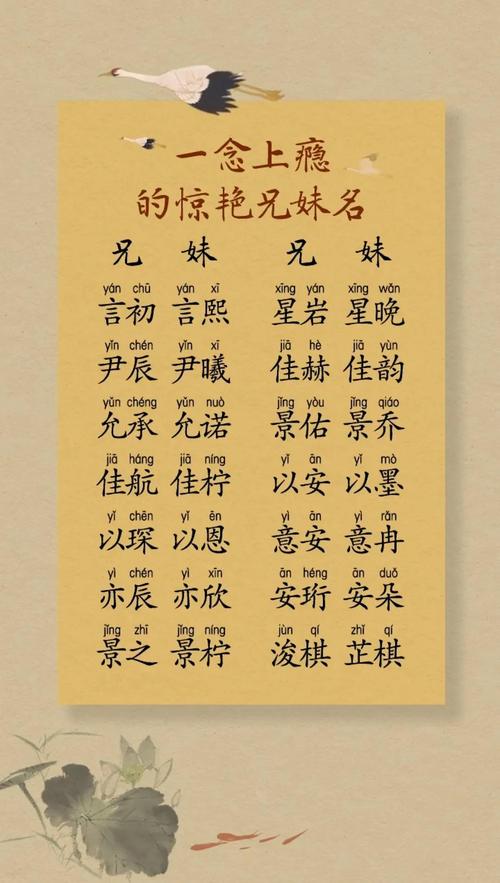 一念上瘾
的惊艳兄妹名
兄 妹 兄 妹
yán chū yán xī xīng yán xīng wǎn
言初 言熙 星岩 星晚
yǐn chén yǐn xī jiā hè jiā yùn
尹辰 尹曦 佳赫 佳韵
yǔn chéng yǔn nuò jǐng yòu jǐng qiáo
允承 允诺 景佑 景乔
jiā háng jiā níng yǐ ān yǐ mò
佳航 佳柠 以安 以墨
yǐ chēn yǐ ēn yì ān yì rǎn
以琛 以恩 意安 意冉
yì chén yì xīn ān héng ān duǒ
亦辰 亦欣 安珩 安朵
jǐng zhī jǐng níng jùn qí zhǐ qí
景之 景柠 浚棋 芷棋